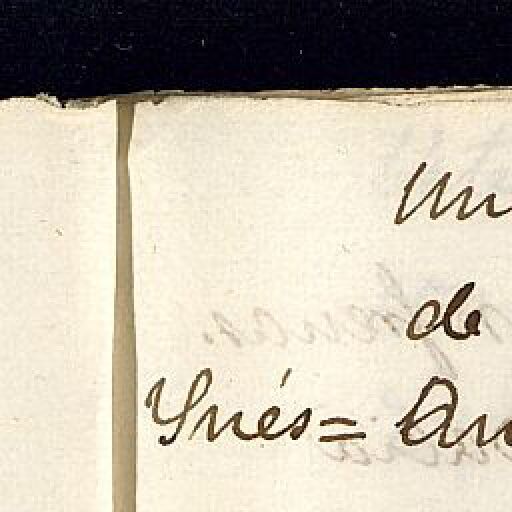 Un
de
Ynés= An